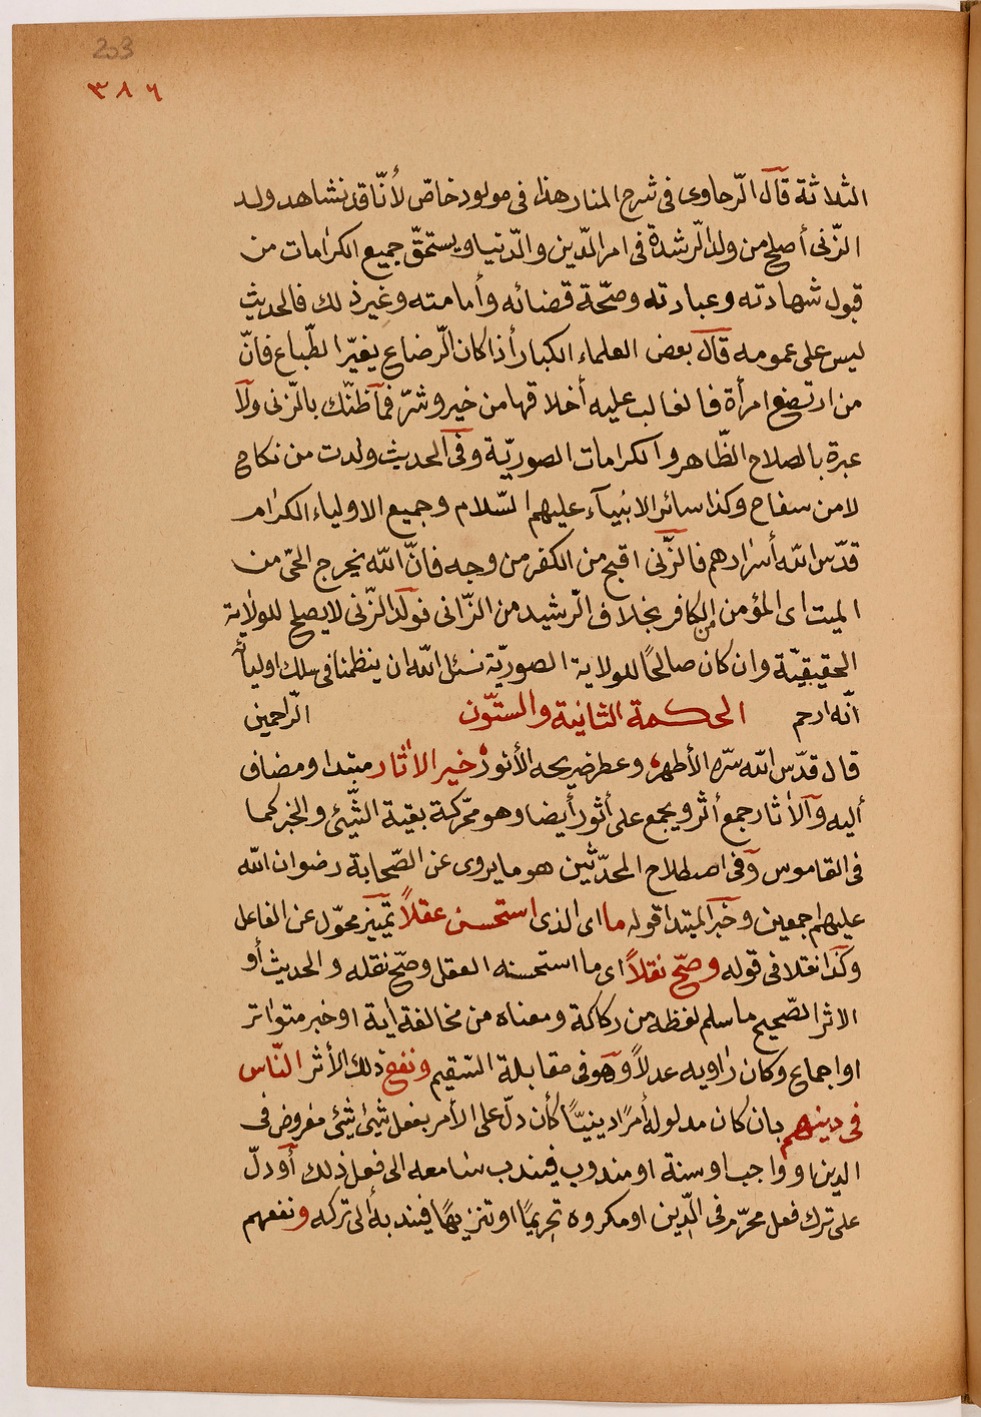 203
٣٨٦
الثلاثة قال الرّهاوى فى شرح المنار هذا فى مولود خاصّ لأنّا قد نشاهد ولد
الزّنى أصلح من ولد الرّشدة فى امر الدّين والدّنيا ويستحقّ جميع الكرامات من
قبول شهادته وعبادته وصحّة قضائه وأمامته وغير ذلك فالحديث
ليس على عمومه قال بعض العلماء الكبار أذا كان الرّضاع يغيّر الطّباع فانّ
من ارتضع امرأة فالغالب عليه أخلاقها من خير وشرّ فما ظنّك بالزّنى ولا
عبرة بالصلاح الظّاهر والكرامات الصوريّة وفى الحديث ولدت من نكاح
لا من سفاح وكذا سائر الانبيآء عليهم السّلام وجميع الاولياء الكرام
قدّس الله أسرارهم فالزّنى اقبح من الكفر من وجه فانّ الله يخرج الحىّ من
الميت اى المؤمن من الكافر بخلاف الرّشيد من الزّانى فولد الزّنى لا يصلح للولاية
الحقيقيّة وان كان صالحًا للولاية الصوريّة نسئل الله ان ينظمنا فى سلك اوليائه
انّه ارحم الحكمة الثانية والستّون الرّاحمين
قال قدّس الله سرّه الأطهر، وعطر ضريحه الأنور خير الاٰثار مبتدا ومضاف
أليه والاٰثار جمع أثر ويجمع على أثور أيضا وهو محّركة بقية الشّيئ والخبر كما
فى القاموس وفى اصطلاح المحدّثين هو ما يروى عن الصّحابة رضوان الله
عليهم اجمعين وخبر المبتدا قوله ما اى الذى استحسن عقلاً تمييز محوّل عن الفاعل
وكذا نقلا فى قوله وصحّ نقلاً اى ما استحسنه العقل وصحّ نقله والحديث أو
الاثر الصّحيح ما سلم لفظه من ركاكة ومعناه من مخالفة اية او خبر متواتر
او اجماع وكان راويه عدلاً وهو فى مقابلة السّقيم ونفع ذلك الأثر النّاس
فى دينهم بان كان مدلوله أمرًا دينيّا كأن دلّ على الأمر بفعل شيئ شيئ مفروض فى
الدين او واجب او سنة او مندوب فيندب سامعه الى فعل ذلك أو دلّ
على ترك فعل محرّم فى الدّين او مكروه تحريمًا او تنزيهًا فيندبه الى تركه ونفعهم